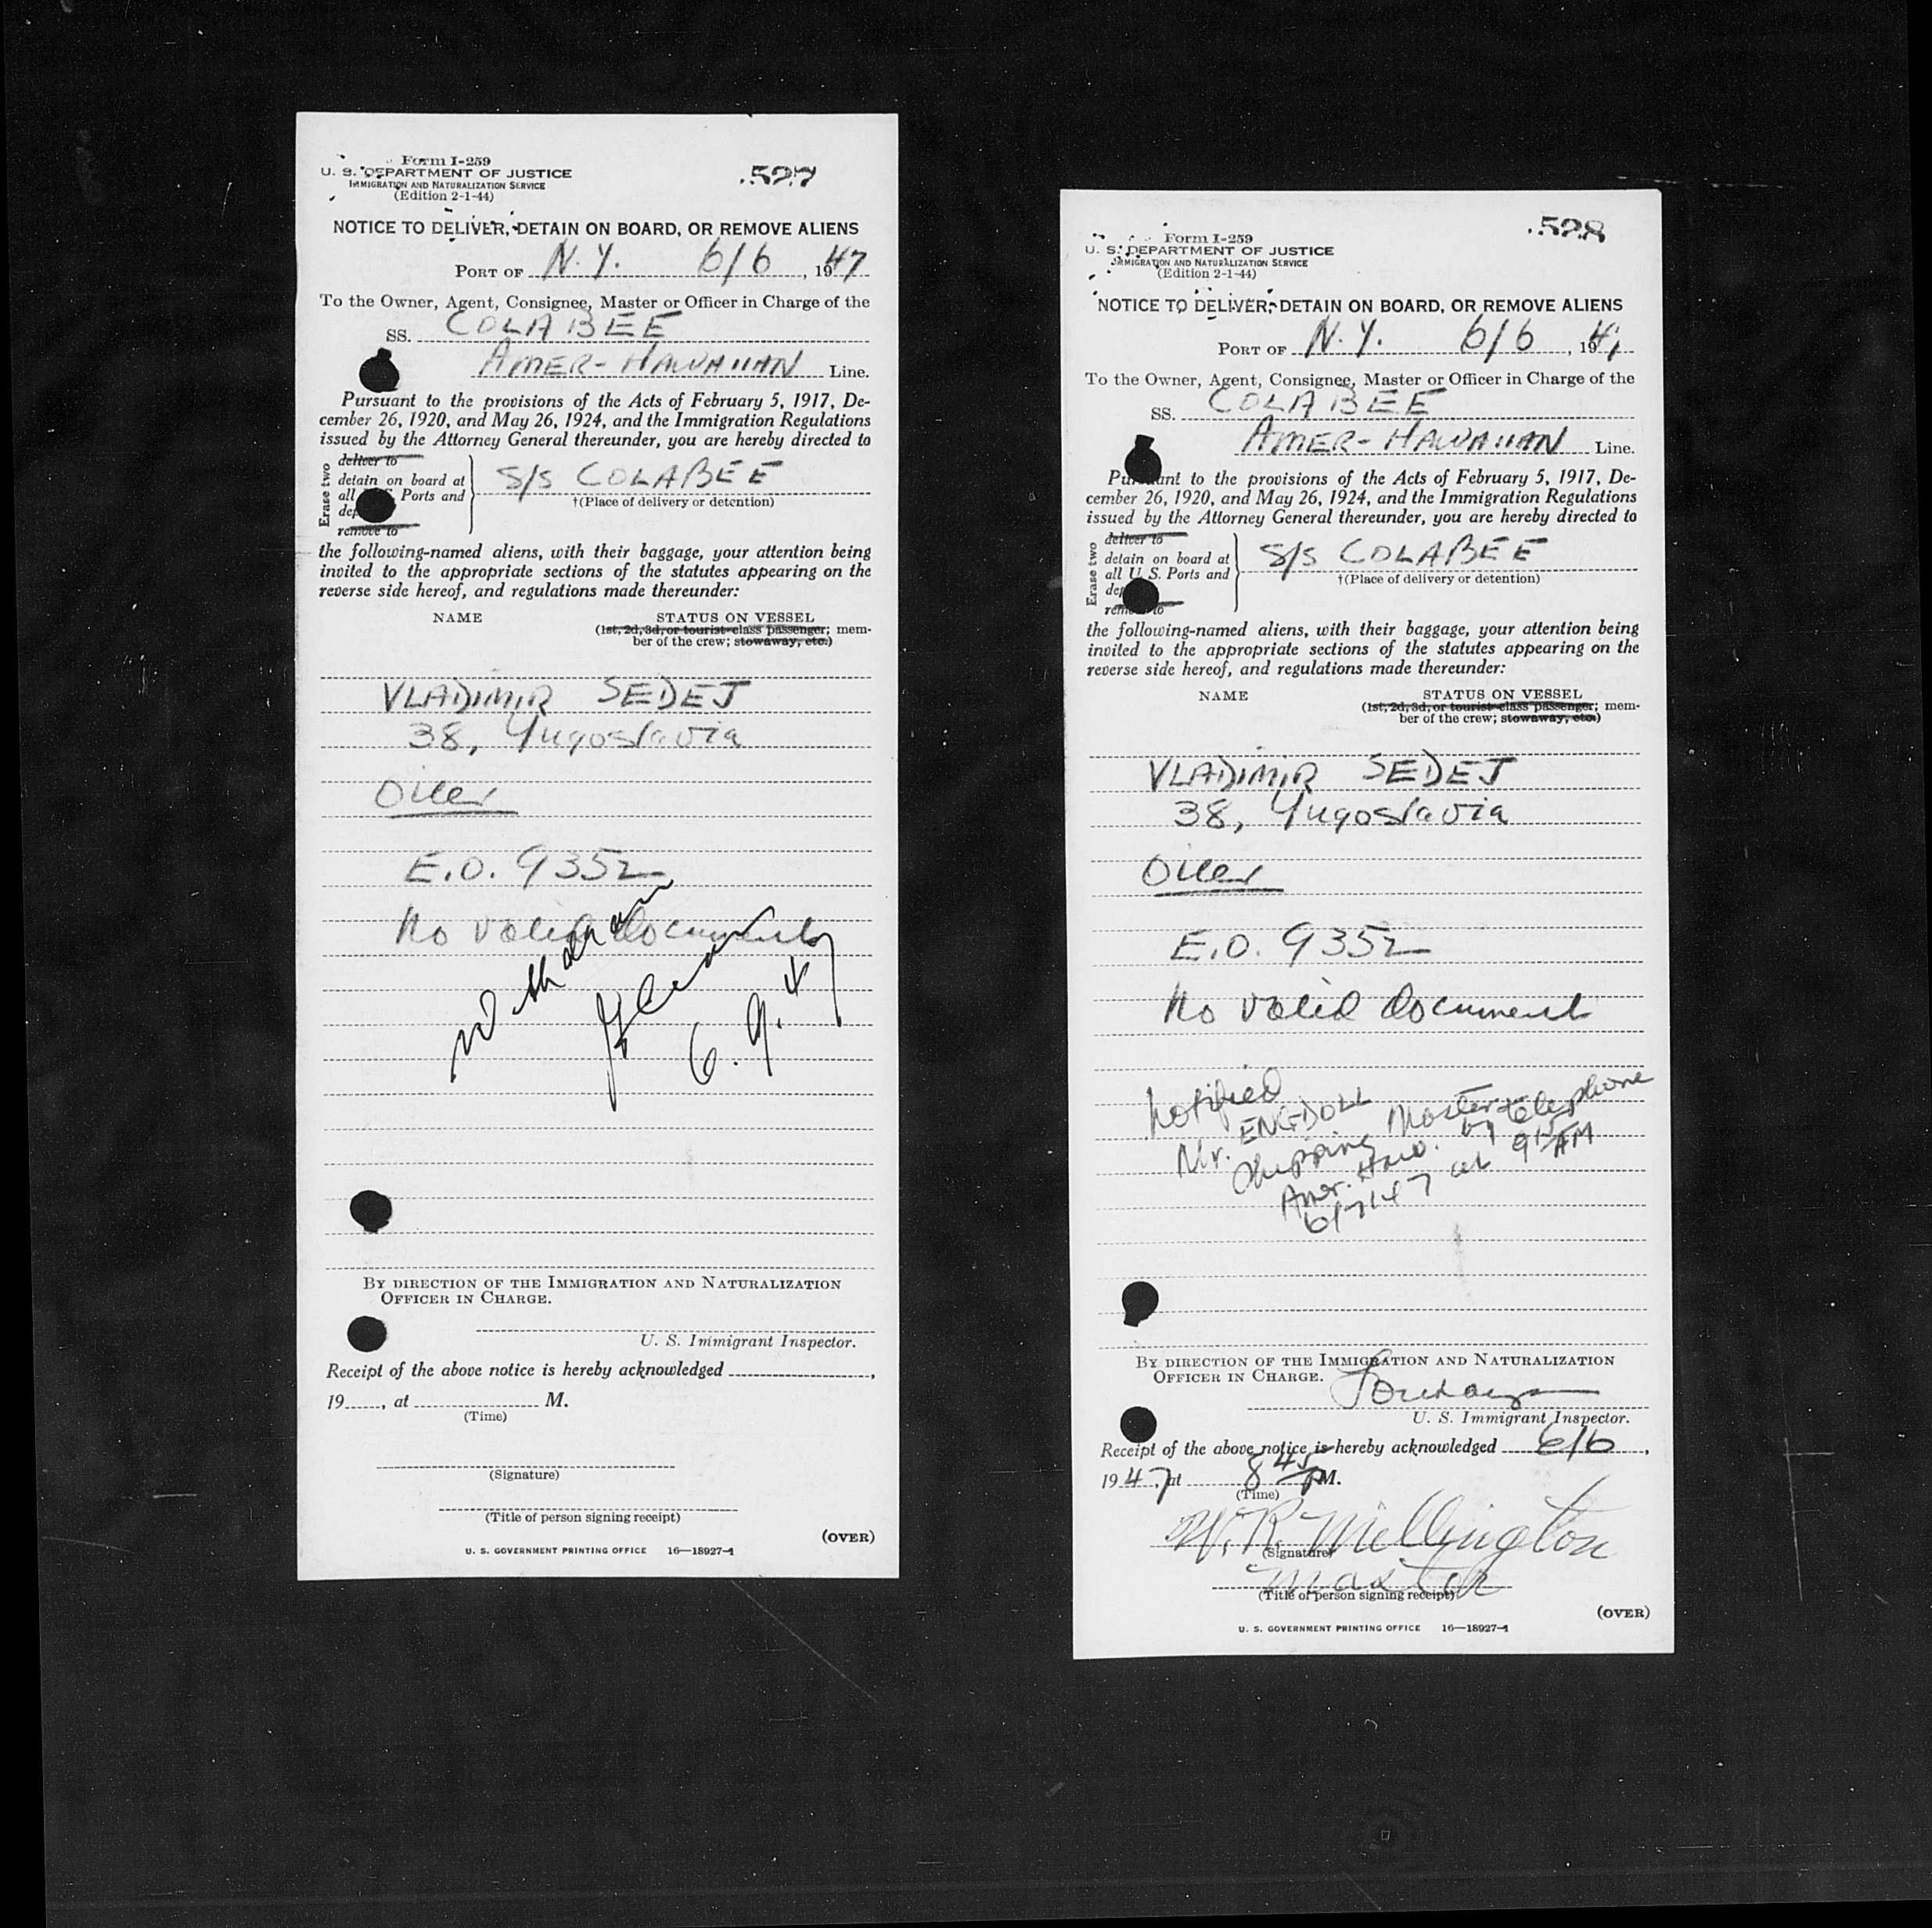 Form I-259
U. S. DEPARTMENT OF JUSTICE
IMMIGRATION AND NATURALIZATION SERVICE
(Edition 2-1-44)
527
NOTICE TO DELIVER, DETAIN ON BOARD, OR REMOVE ALIENS
PORT OF N. Y. 6/6, 1947
To the Owner, Agent, Consignee, Master or Officer in Charge of the
SS. COLABEE
AMER-HAWAIIAN Line.
Pursuant to the provisions of the Acts of February 5, 1917, De-
cember 26, 1920, and May 26, 1924, and the Immigration Regulations
issued by the Attorney General thereunder, you are hereby directed to
Erase two
deliver to
detain on board at
all Ports and
remove to
S/S COLABEE
†(Place of delivery or detention)
the following-named aliens, with their baggage, your attention being
invited to the appropriate sections of the statutes appearing on the
reverse side hereof, and regulations made thereunder:
NAME STATUS ON VESSEL
(1st, 2d, 3d, or tourist-class passenger; mem-
ber of the crew; stowaway, etc.)
VLADIMIR SEDEJ
38, Yugoslavia
Oiler
E.O. 9352
No valid document
withdrawn
6.9.47
BY DIRECTION OF THE IMMIGRATION AND NATURALIZATION
OFFICER IN CHARGE.
U. S. Immigrant Inspector.
Receipt of the above notice is hereby acknowledged ,
19 , at M.
(Time)
(Signature)
(Title of person signing receipt)
(OVER)
U. S. GOVERNMENT PRINTING OFFICE 16—18927-1
528
Form I-259
U. S. DEPARTMENT OF JUSTICE
IMMIGRATION AND NATURALIZATION SERVICE
(Edition 2-1-44)
NOTICE TO DELIVER, DETAIN ON BOARD, OR REMOVE ALIENS
PORT OF N. Y. 6/6, 194
To the Owner, Agent, Consignee, Master or Officer in Charge of the
SS. COLABEE
AMER-HAWAIIAN Line.
Pursuant to the provisions of the Acts of February 5, 1917, De-
cember 26, 1920, and May 26, 1924, and the Immigration Regulations
issued by the Attorney General thereunder, you are hereby directed to
Erase two
deliver to
detain on board at
all U. S. Ports and
remove to
S/S COLABEE
†(Place of delivery or detention)
the following-named aliens, with their baggage, your attention being
invited to the appropriate sections of the statutes appearing on the
reverse side hereof, and regulations made thereunder:
NAME STATUS ON VESSEL
(1st, 2d, 3d, or tourist-class passenger; mem-
ber of the crew; stowaway, etc.)
VLADIMIR SEDEJ
38, Yugoslavia
Oiler
E.O. 9352
No valid document
Notified
Mr. ENGDOLL
Shipping Master
Amer. Haw. by telephone
6/7/47 at 9 15 AM
BY DIRECTION OF THE IMMIGRATION AND NATURALIZATION
OFFICER IN CHARGE.
U. S. Immigrant Inspector.
Receipt of the above notice is hereby acknowledged 6/6,
1947, at 8 45 PM.
(Time)
W. R. Millington
(Signature)
Master
(Title of person signing receipt)
(OVER)
U. S. GOVERNMENT PRINTING OFFICE 16—18927-1